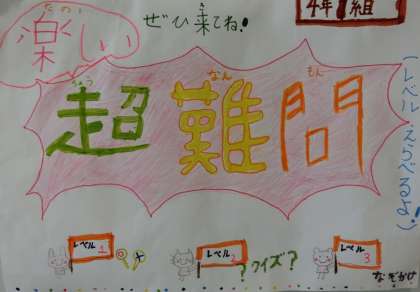 たの
楽しい
き
ぜひ来てね!
4年1組
ちょう なん もん
超難問
(レベル、えらべるよ!)
レベル1
レベル2
レベル3
?クイズ?
なぞかけ